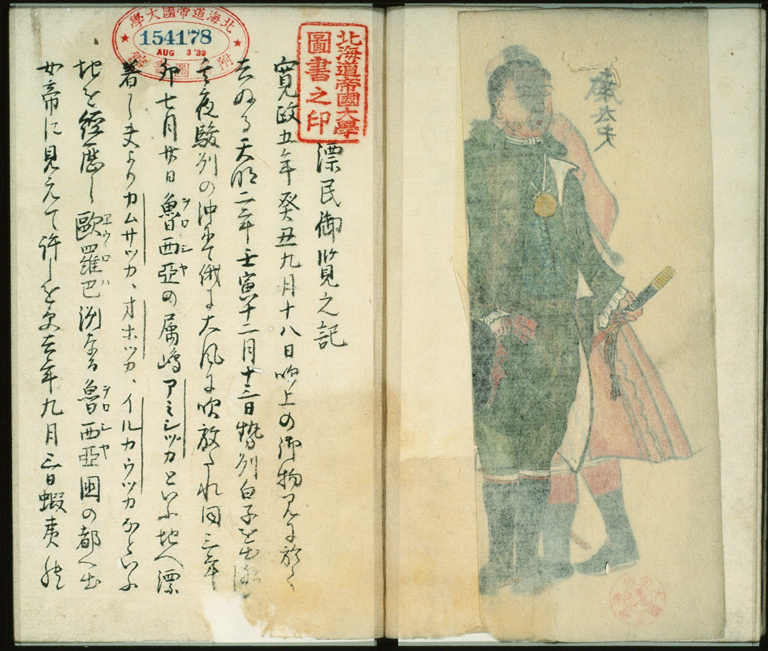 太夫
北海道帝國大學
圖書之印
北海道帝國大學
154178
AUG 3 '39
漂民御覧之記
寛政五年癸丑九月十八日吹上の御物見に於て
去ぬる天明二年壬寅十二月十三日勢州白子を出帆
其夜駿州の沖にて俄に大風に吹放たれ同三年
卯七月廿日魯西亜の属嶋アミシツカといふ地へ漂
ヲロシヤ
着し夫よりカムサツカ、オホツカ、イルカウツカなといふ
地を経歴し歐羅巴洲なる魯西亜国の都へ出
ヱウロハ
ヲロシヤ
女帝に見えて許しを受去年九月三日蝦夷